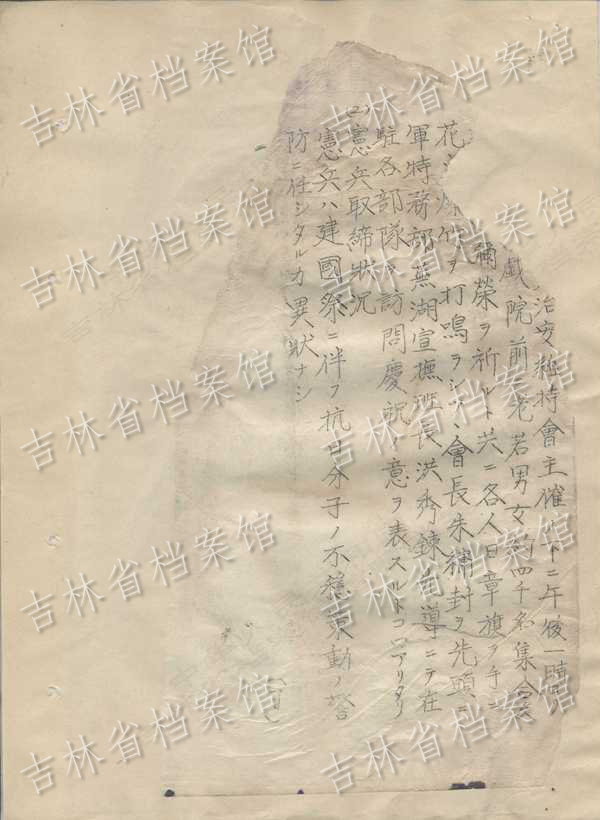 治安維持會主催ノ下ニ午後一時ヨリ
戯院前ニ老若男女約四千名集合
彌榮ヲ祈ルト共ニ各人日章旗ヲ手ニ
花火爆竹ヲ打鳴ラシツヽ會長朱補封ヲ先頭ニ
軍特務部蕪湖宣撫班長洪秀錬ノ導ニテ在
駐各部隊ヲ訪問慶祝ノ意ヲ表スルトコロアリタリ
(2)憲兵取締狀況
憲兵ハ建國祭ニ伴フ抗日分子ノ不穩策動ノ警
防ニ任シタルカ異狀ナシ
吉林省档案馆
吉林省档案馆
吉林省档案馆
吉林省档案馆
吉林省档案馆
吉林省档案馆
吉林省档案馆
吉林省档案馆
吉林省档案馆
吉林省档案馆